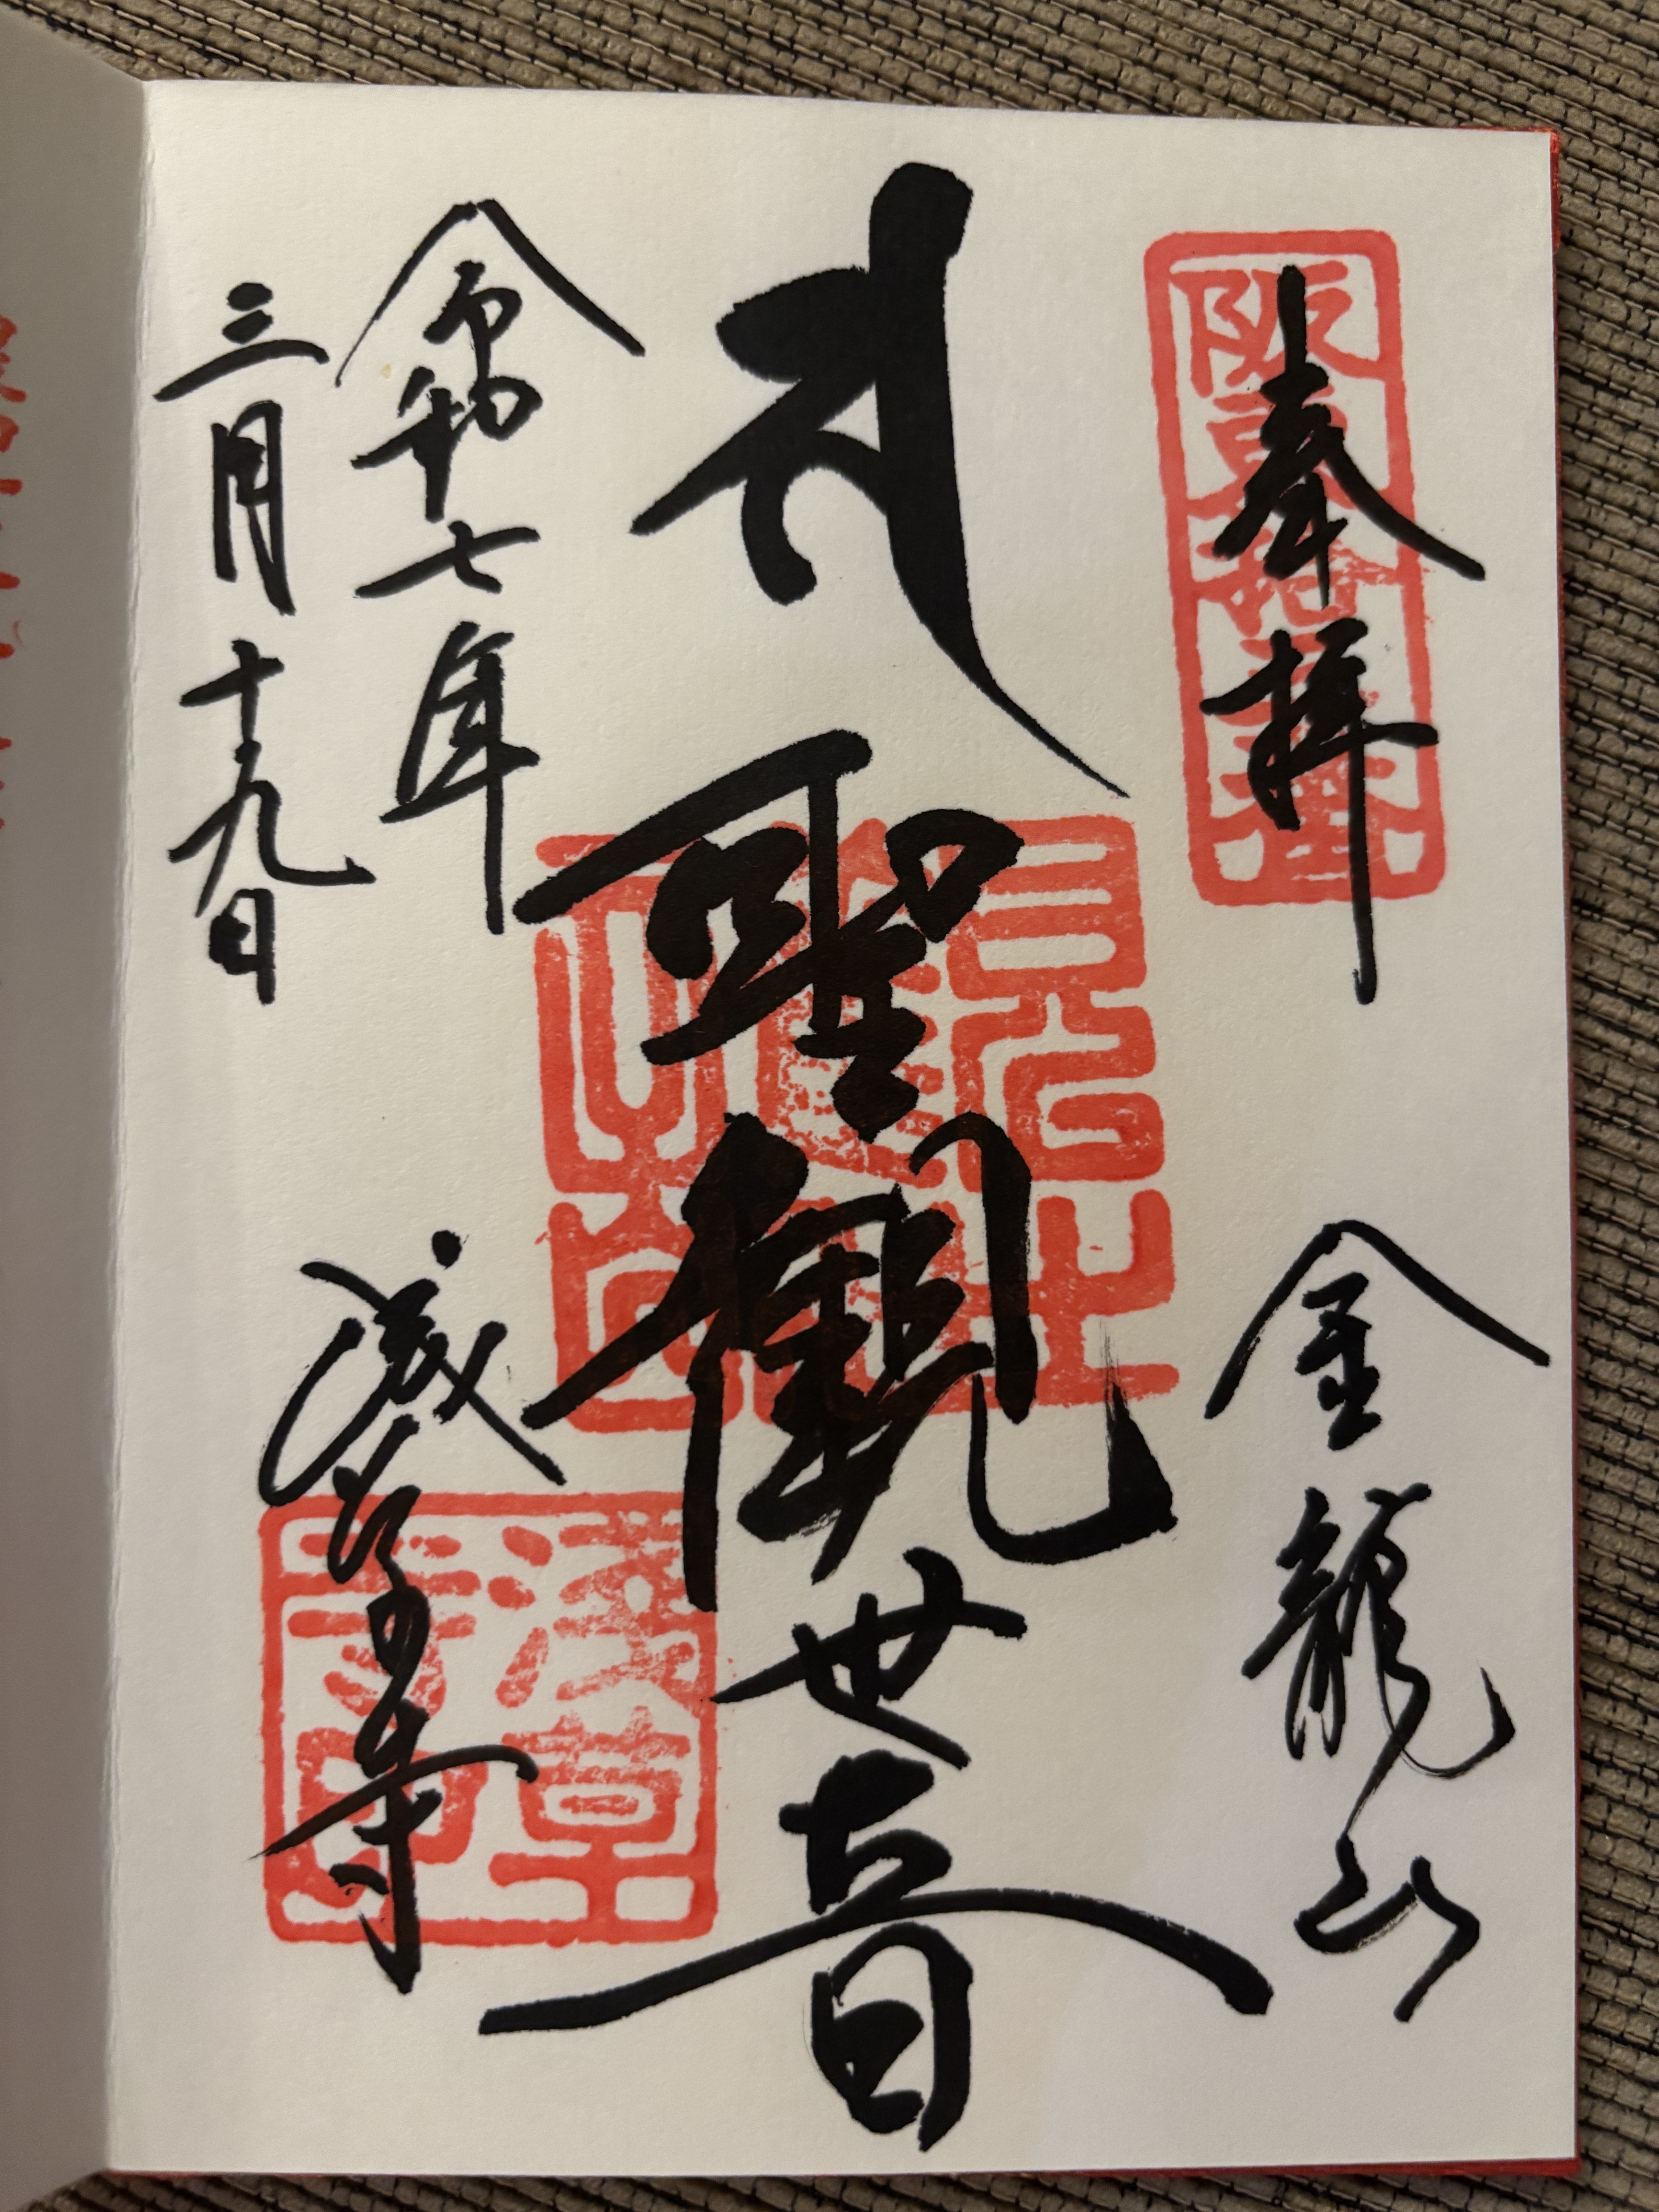 奉拝
阪東拾三番
金龍山
𑖭
聖觀世音
令和七年
三月十九日
浅草寺
淺草寺印